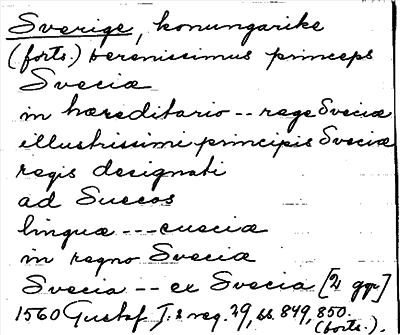 Sverige, konungarike
(forts.) serenissimus princeps
Sveciæ
in hæreditario -- rege Sveciæ
illustrissimi principis Sveciæ
regis designati
ad Suecos
linguæ --- cueciæ
in regno Sveciæ
Svecia -- ex Svecia [2 ggr]
1560 Gustaf I:s reg. 29, ss. 849, 850.
(forts.).